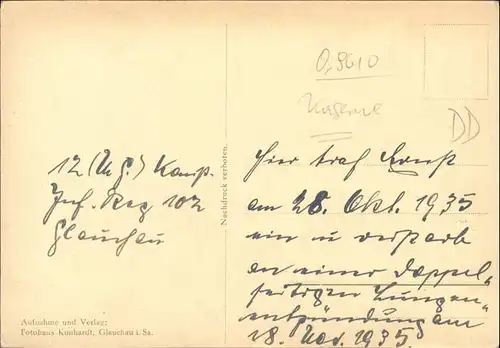 0,9610
Kaserne
DD
12 (M.G.) Komp.
Inf. Reg 102
Glauchau
Nachdruck verboten.
Hier traf Ernst
am 28. Okt. 1935
ein u verstarb
an einer Doppel-
seitigen Lungen-
entzündung am
18. Nov. 1935
Aufnahme und Verlag:
Fotohaus Kunhardt, Glauchau i. Sa.